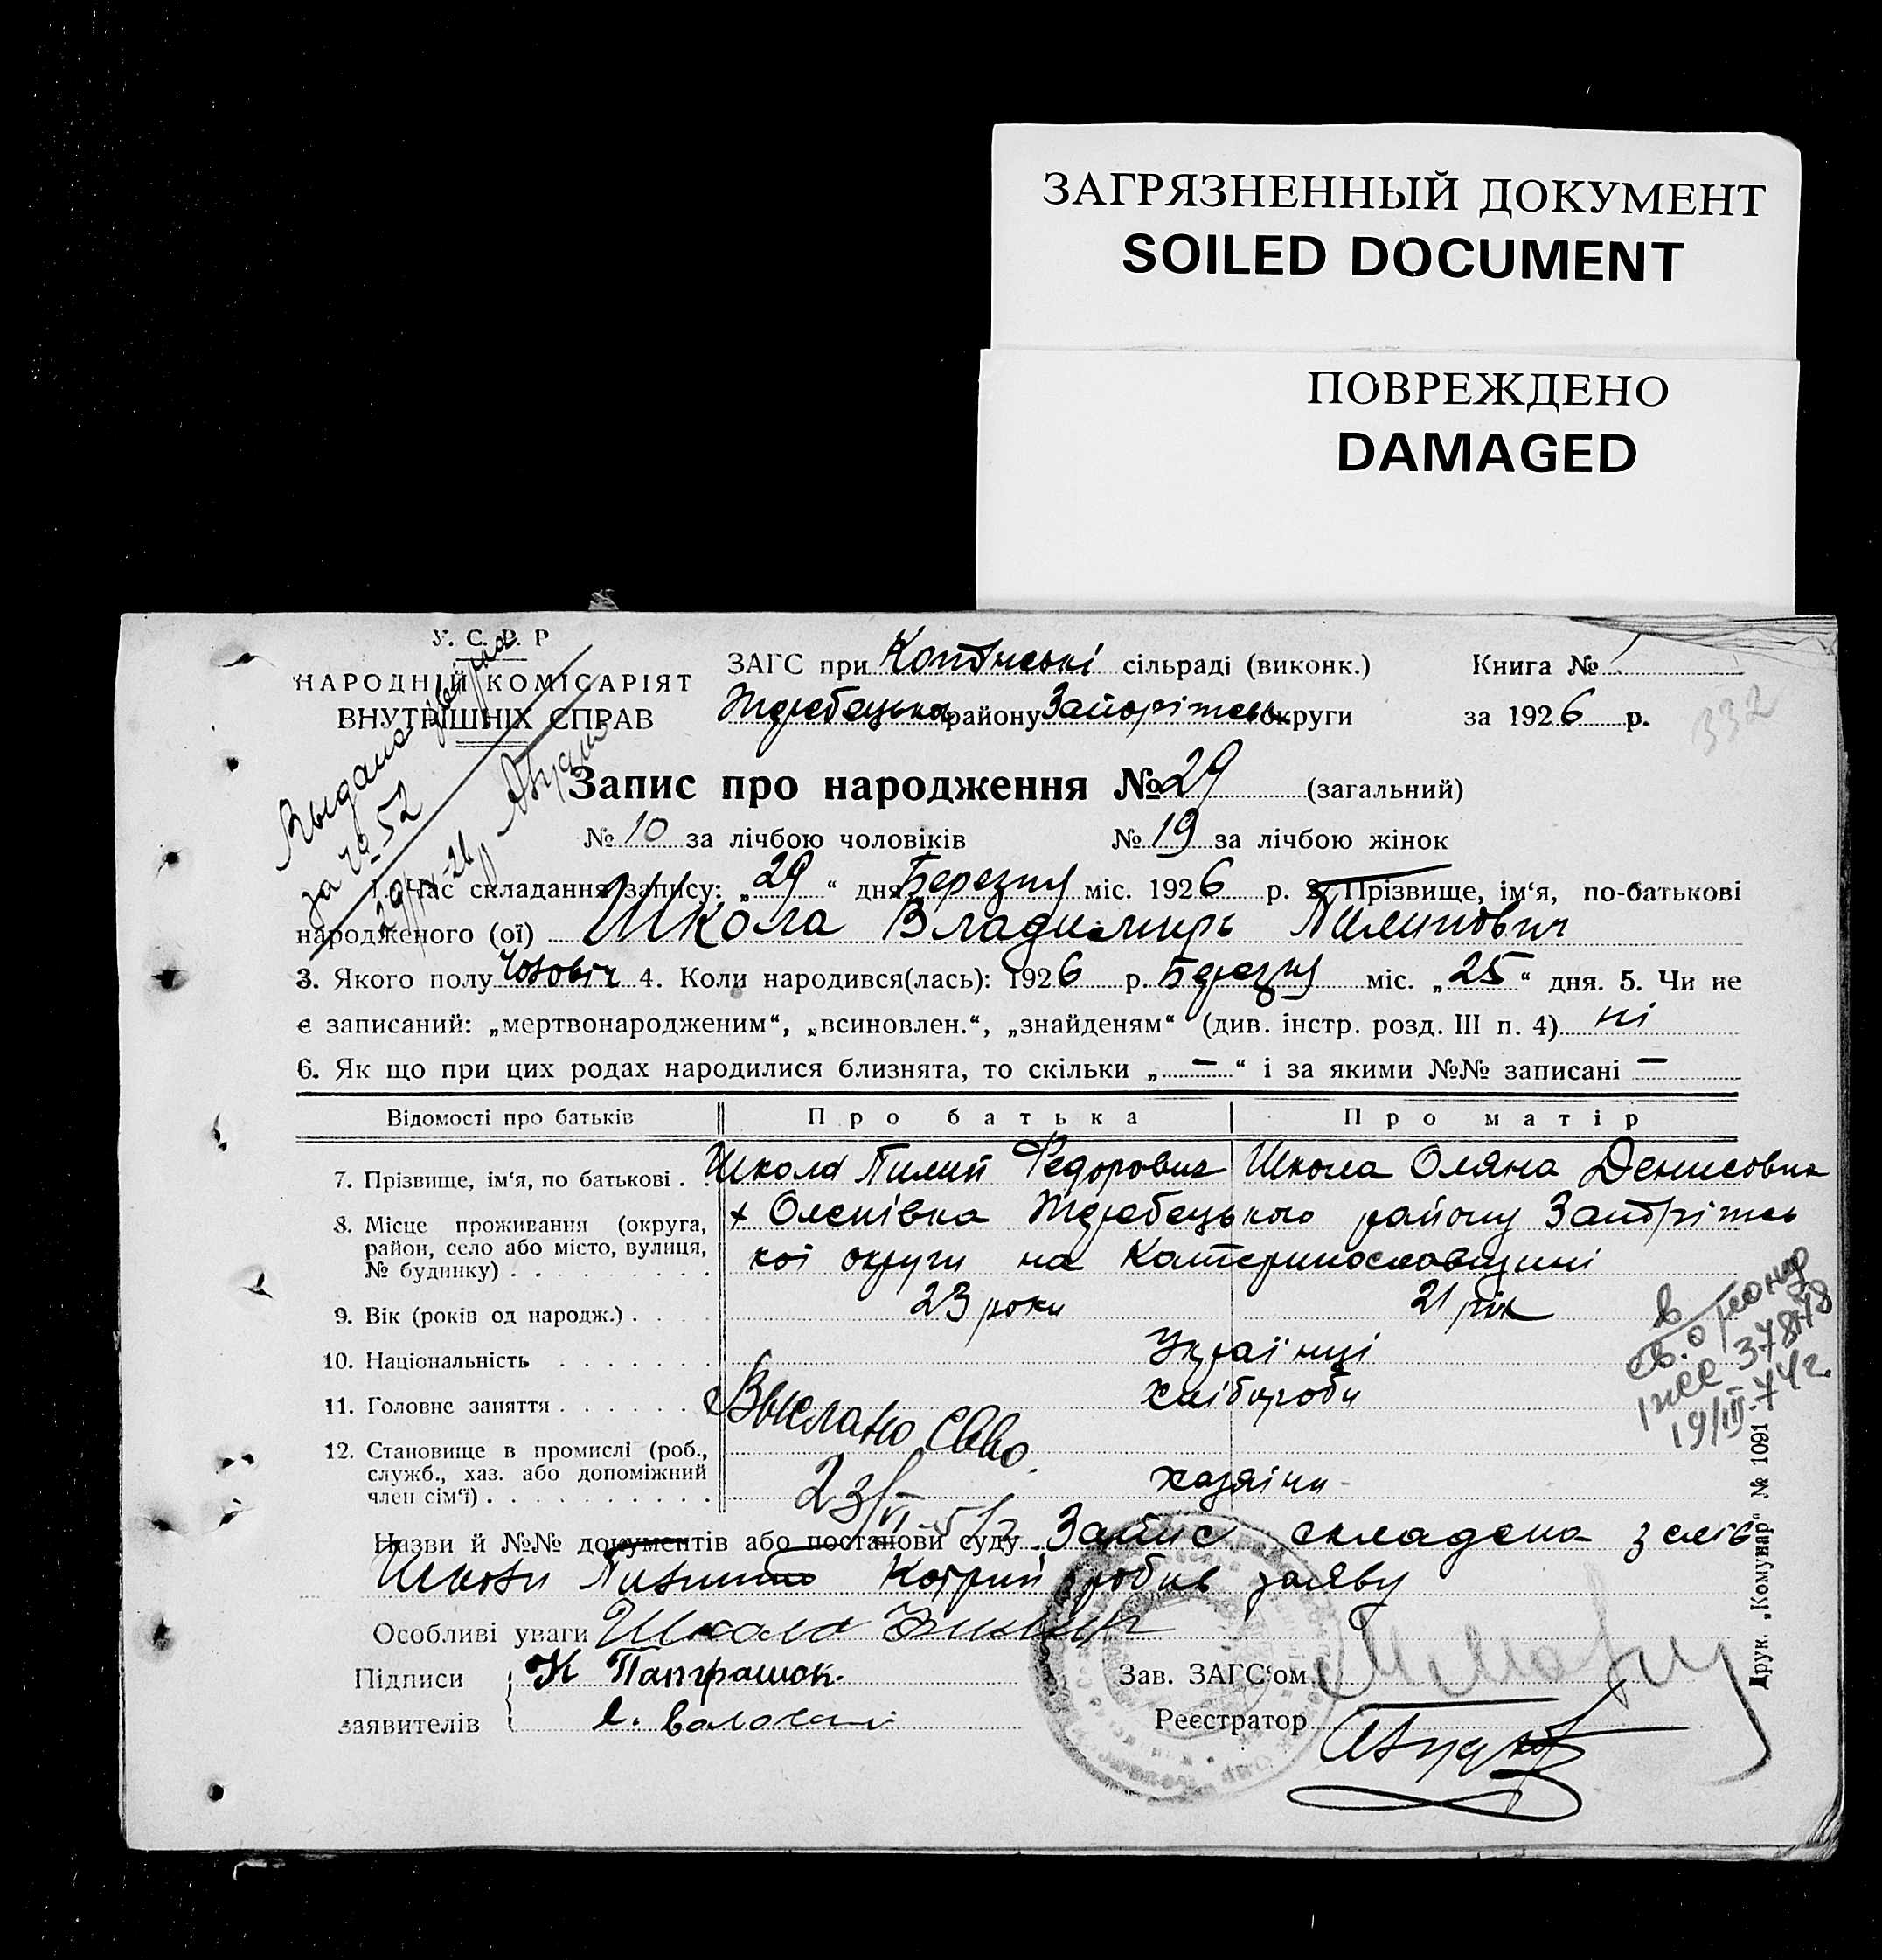 ЗАГРЯЗНЕННЫЙ ДОКУМЕНТ
SOILED DOCUMENT
ПОВРЕЖДЕНО
DAMAGED
У. С. Р. Р
НАРОДНІЙ КОМІСАРІЯТ
ВНУТРІШНІХ СПРАВ
ЗАГС при сільраді (виконк.) Книга № 1
району округи за 1926 р.
332
Запис про народження № 29 (загальний)
№ 10 за лічбою чоловіків № 19 за лічбою жінок
Выдана
за № 52
1. Час складання запису: „29“ дня Березня міс. 1926 р. 2. Прізвище, ім‘я, по-батькові
народженого (ої) Школа Владимирь Пилипович
3. Якого полу 4. Коли народився(лась): 1926 р. Березня міс. „25“ дня. 5. Чи не
є записаний: „мертвонародженим“, „всиновлен.“, „знайденям“ (див. інстр. розд. III п. 4) ні
6. Як що при цих родах народилися близнята, то скільки „—“ і за якими №№ записані —
Відомості про батьків Про батька Про матір
7. Прізвище, ім‘я, по батькові . . Школа Пилип Федорович Школа Оляна Денисовна
8. Місце проживання (округа, район, село або місто, вулиця, № будинку) х Оленівка Жеребецького району Запоріжсь
кої округи на Катеринославщині
9. Вік (років од народж.) 23 роки 21 рік
10. Національність Українці
11. Головне заняття хлібороби
Выслано
12. Становище в промислі (роб., служб., хаз. або допоміжний член сім‘ї) хазяїни
Назви й №№ документів або постанови суду Запис складено з слів
Школи Пилипа Котрий робив заяву
Особливі уваги Школа
Підписи
заявителів
Зав. ЗАГС‘ом
Реєстратор
19/III-74г.
Друк. „Комунар“ № 1091